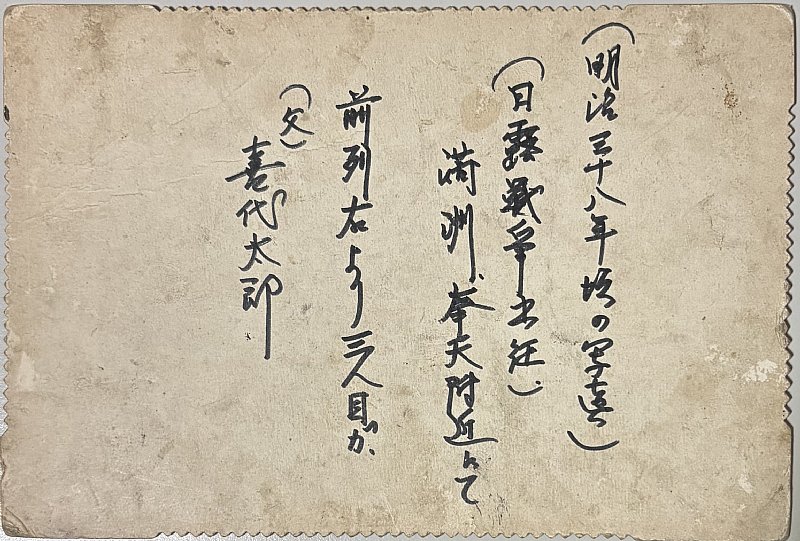 （明治三十八年頃の写真）
（日露戦争出征）
満洲、奉天附近にて
前列右より三人目が、
（父）
喜代太郎